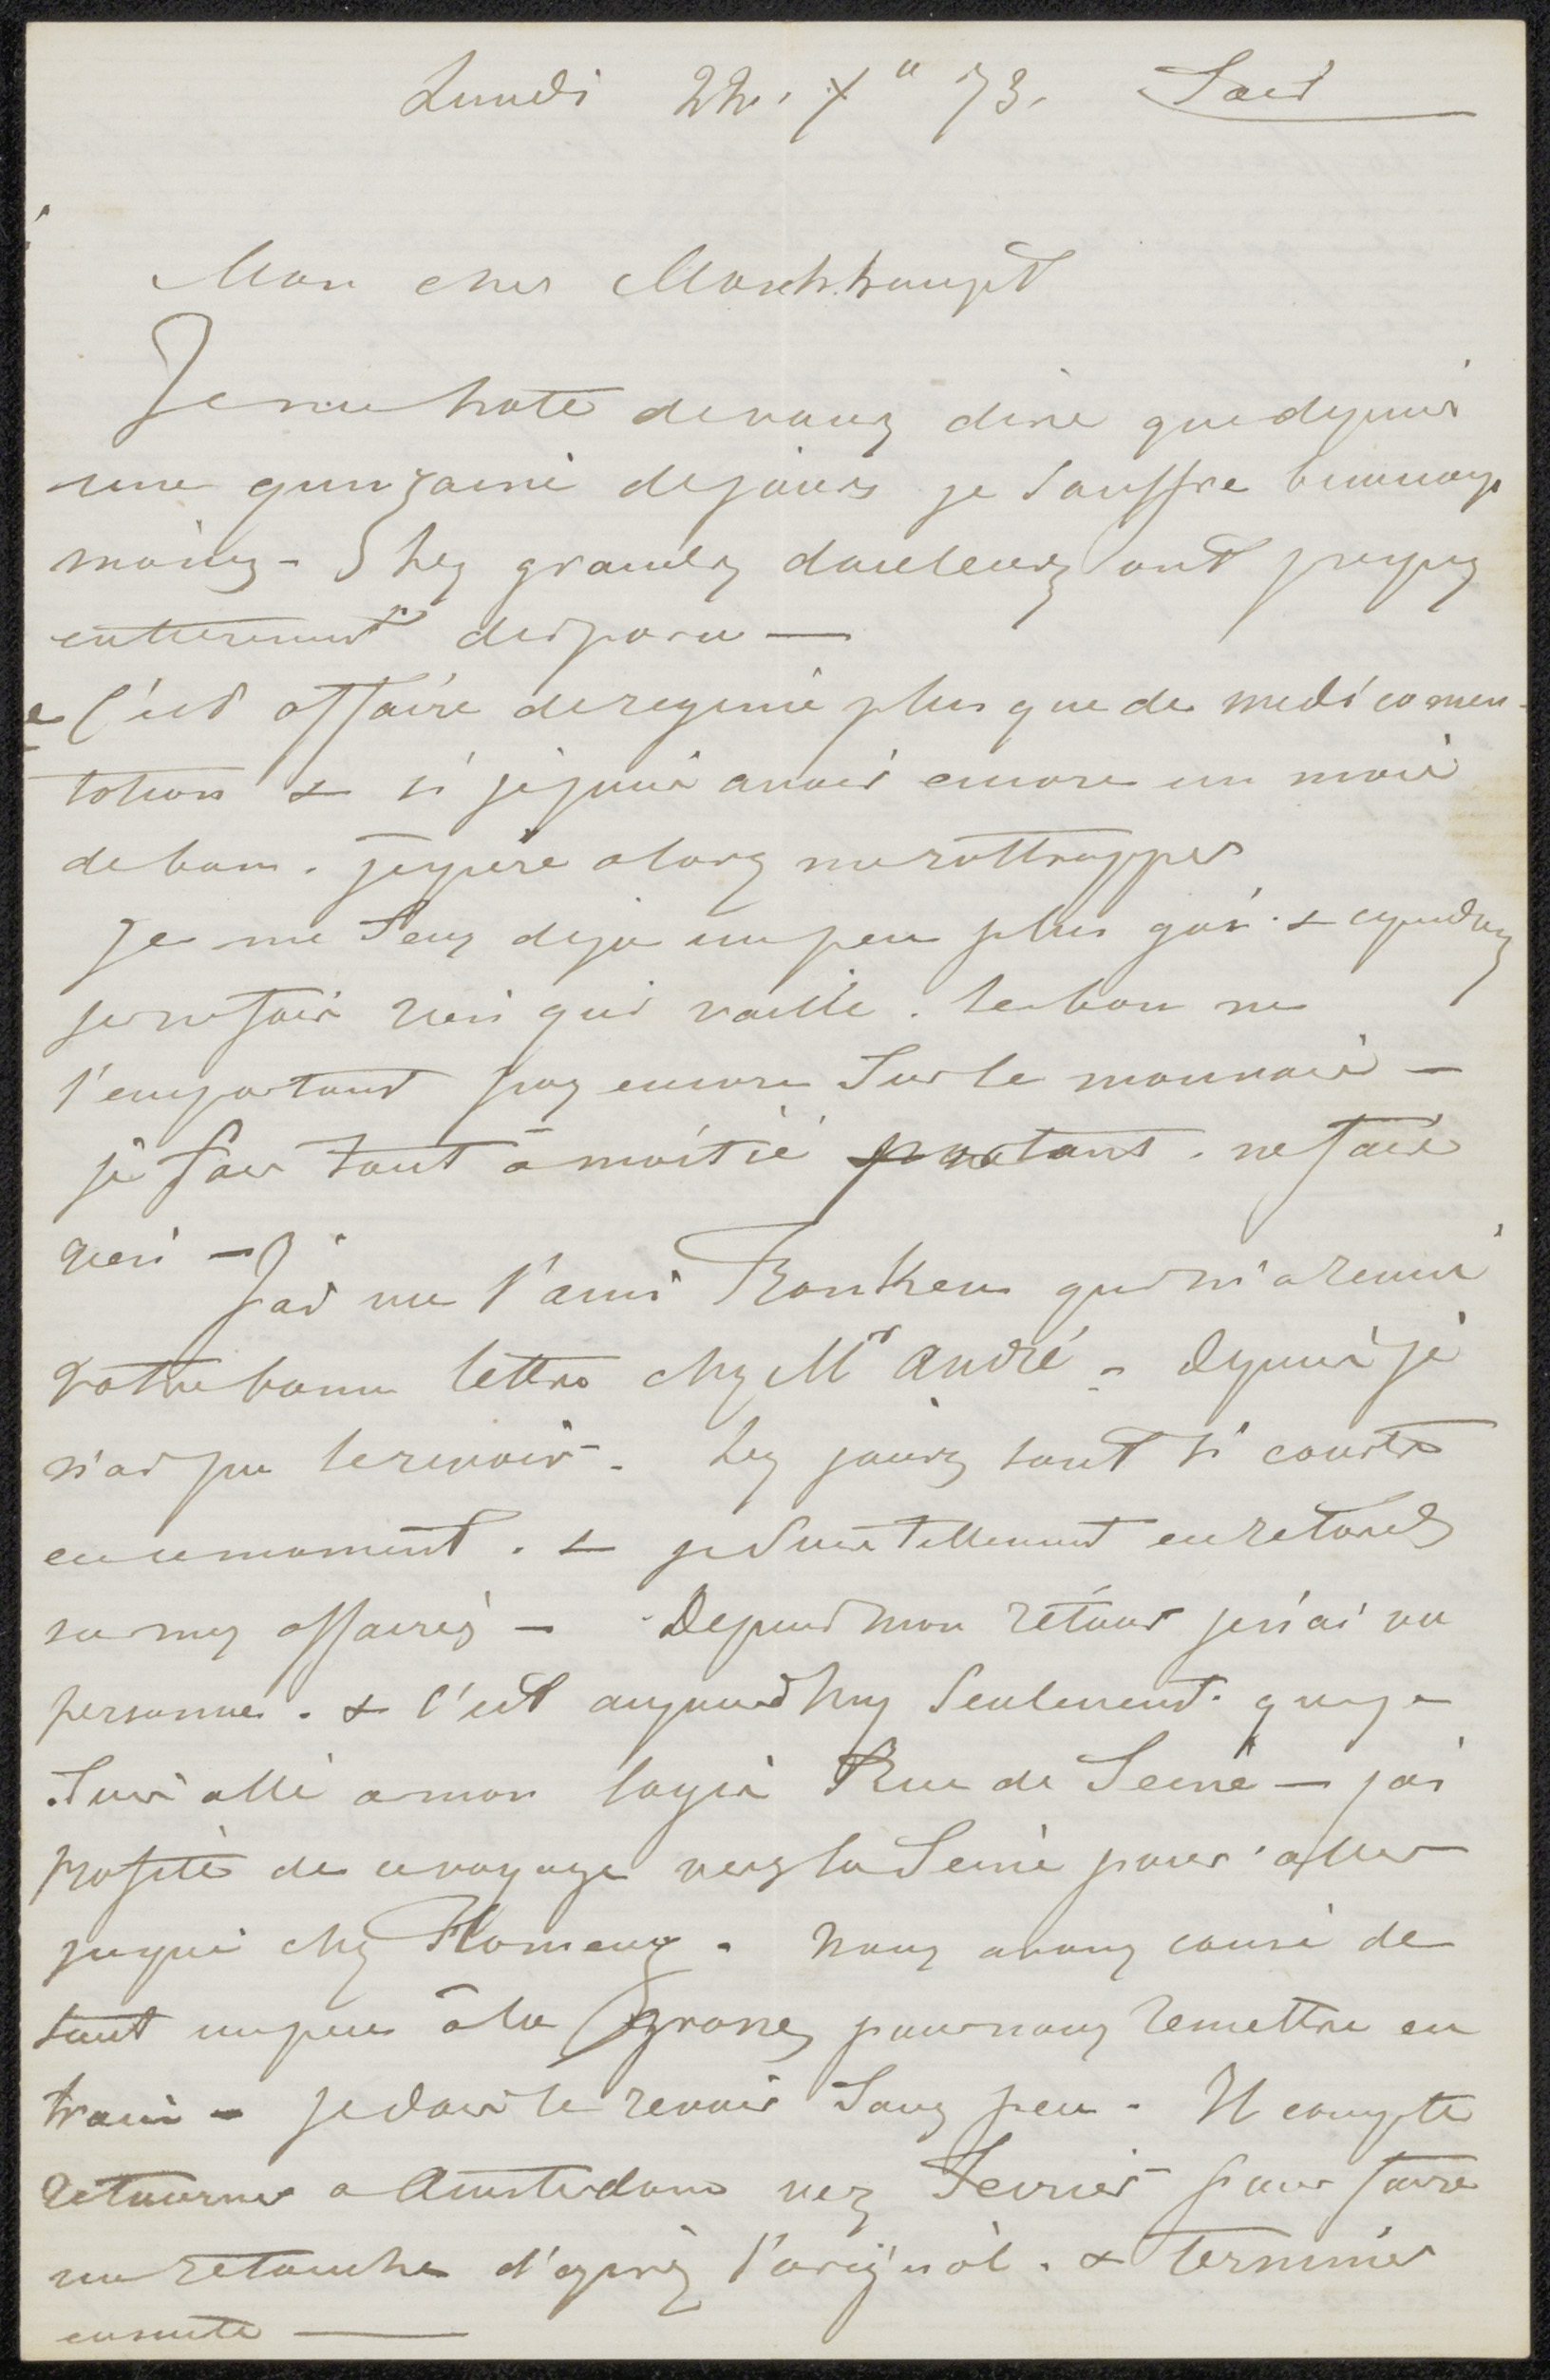 Lundi 22. Xbre 73. Soir
Mon cher Mark haupt
Je me hate de vous dire que depuis
une quinzaine de jours je souffre beaucoup
moins - les grandes douleurs ont presque
entierement disparu —
C'est affaire de regime plus que de medicamen-
tation & si je puis avoir encore un mois
de bon. j'espère alors me rattrapper
je me sens deja un peu plus gai. & cependant
je ne fais rien qui vaille. le bon ne
l'emportant pas encore sur le mauvais —
je fais tout à moitié partant. ne fais
rien — J'ai vu l'ami qui m'a remis
votre bonne lettre chez Mr André - depuis je
n'ai pu le revoir - les jours sont si courts
en ce moment. & je suis tellement en retard
sur mes affaires — Depuis mon retour je n'ai vu
personne. & c'est aujourd'huy seulement. que je
suis allé a mon logis Rue de Seine — j'ai
profité de ce voyage vers la Seine pour aller
jusque chez Flameng. nous avons causé de
tout un peu à la pour nous remettre en
train - je dois le revoir sous peu - Il compte
retourner a Amsterdam vers Fevrier pour faire
une retouche d'après l'original. & terminer
ensuite —